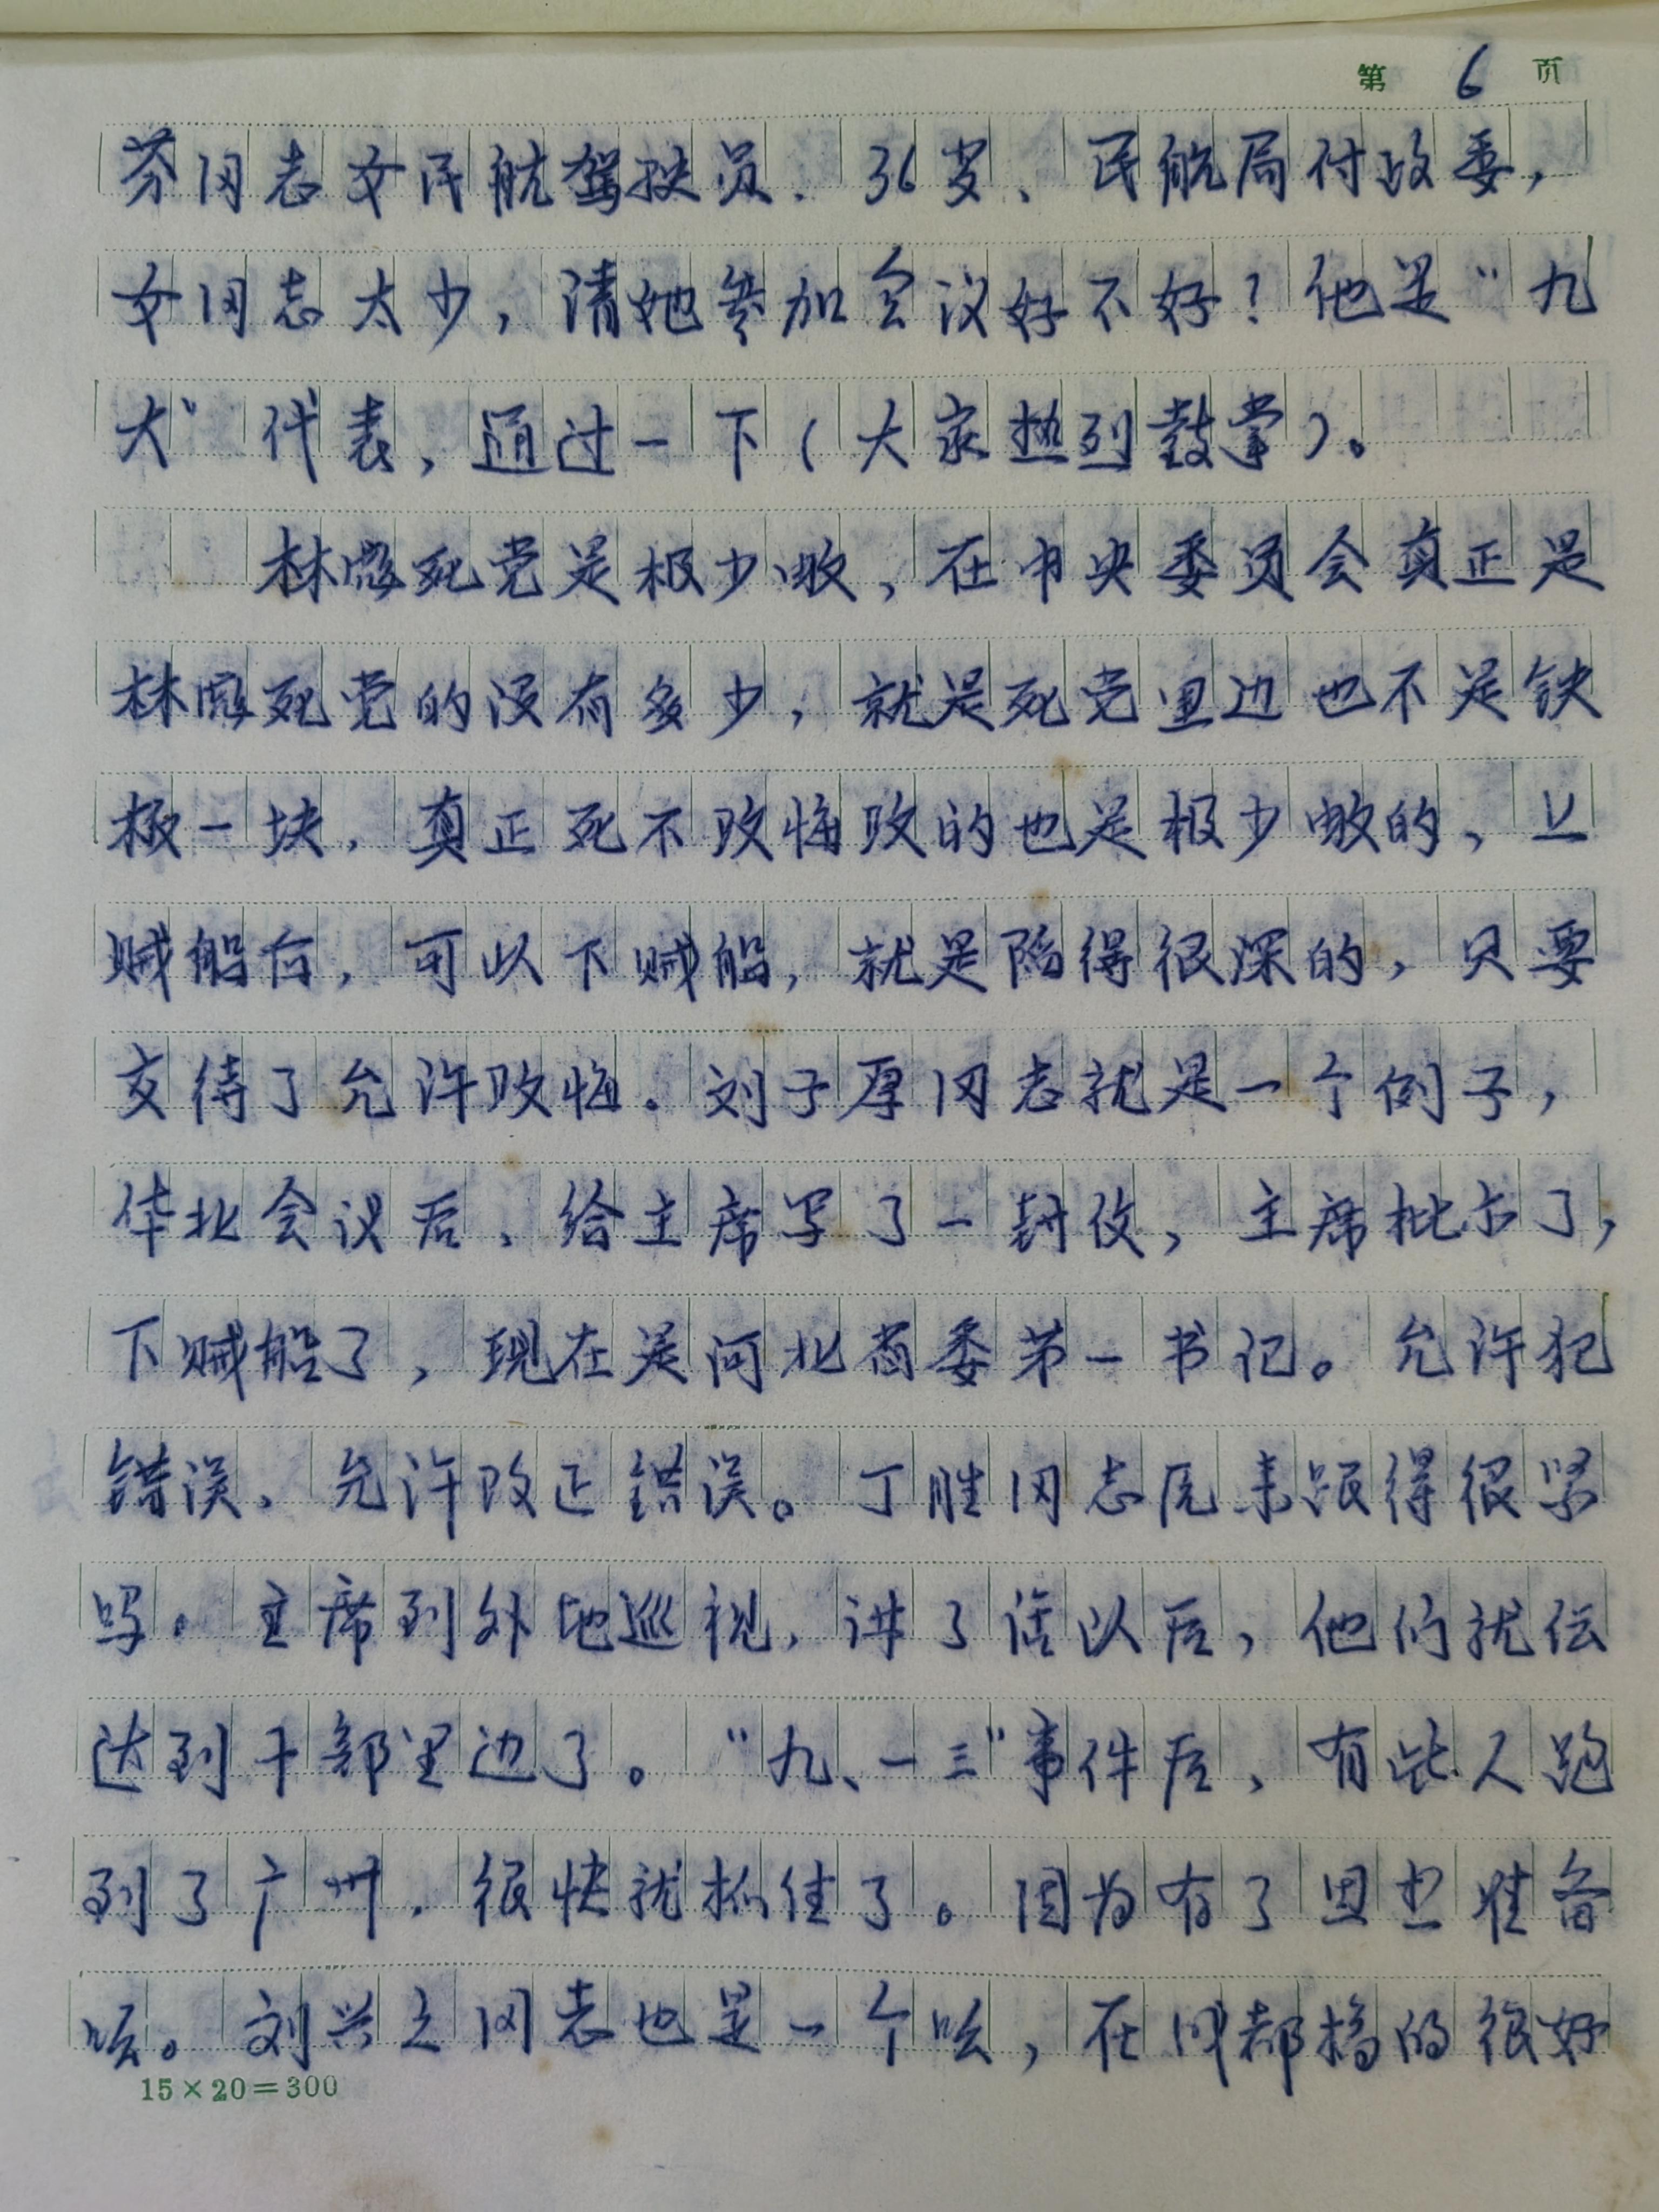 第 6 页
芬同志女民航驾驶员、36岁、民航局付政委，
女同志太少，请她参加会议好不好？他是“九
大”代表，通过一下（大家热烈鼓掌）。
林彪死党是极少数，在中央委员会真正是
林彪死党的没有多少，就是死党里边也不是铁
板一块，真正死不改悔改的也是极少数的，上
贼船后，可以下贼船，就是陷得很深的，只要
交待了允许改悔。刘子厚同志就是一个例子，
华北会议后，给主席写了一封信，主席批示了，
下贼船了，现在是河北省委第一书记。允许犯
错误、允许改正错误。丁胜同志原来跟得很紧
吗。主席到外地巡视，讲了话以后，他们就传
达到干部里边了。“九、一三”事件后，有些人跑
到了广州，很快就抓住了。因为有了思想准备
嘛。刘兴元同志也是一个嘛，在成都搞的很好
15×20＝300